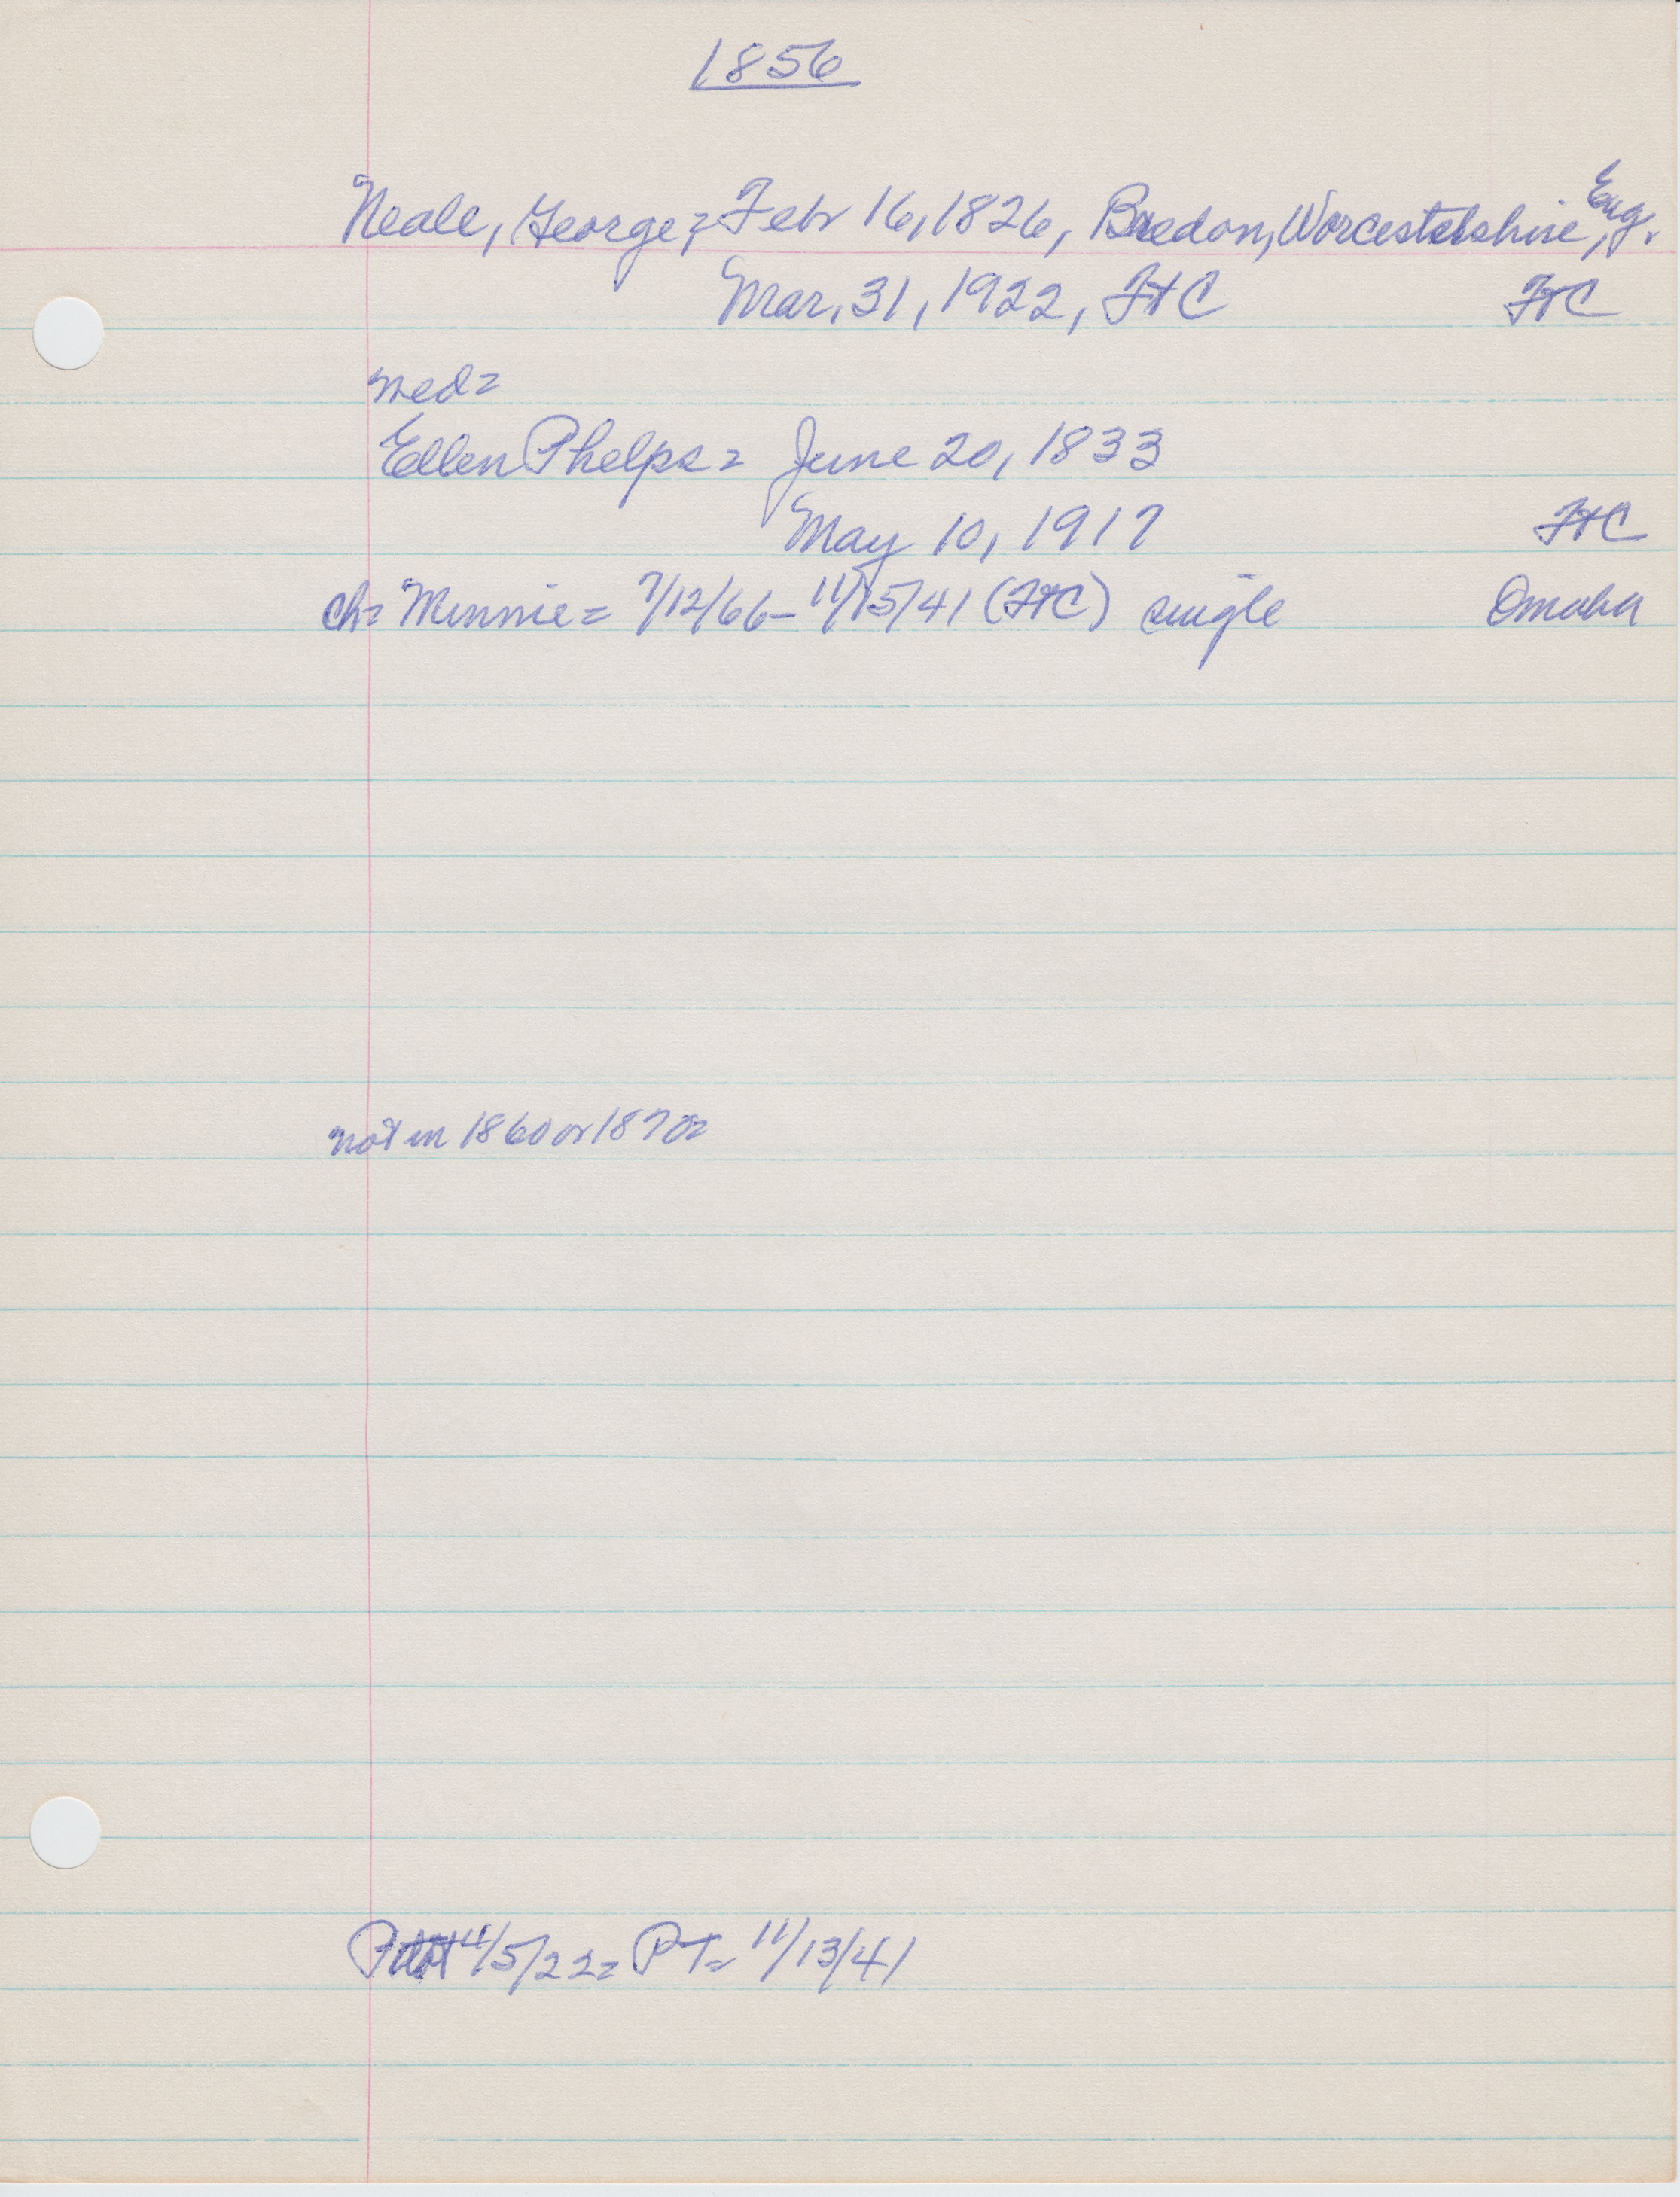 1856
Neale, George = Feb 16, 1826, Bredon, Worcestershire, Eng.
Mar. 31, 1922, FtC FtC
med =
Ellen Phelps = June 20, 1833
May 10, 1917 FtC
ch = Minnie = 7/12/66 - 11/15/41 (FtC) single Omaha
not in 1860 or 1870 =
4/5/22 = PT = 11/13/41